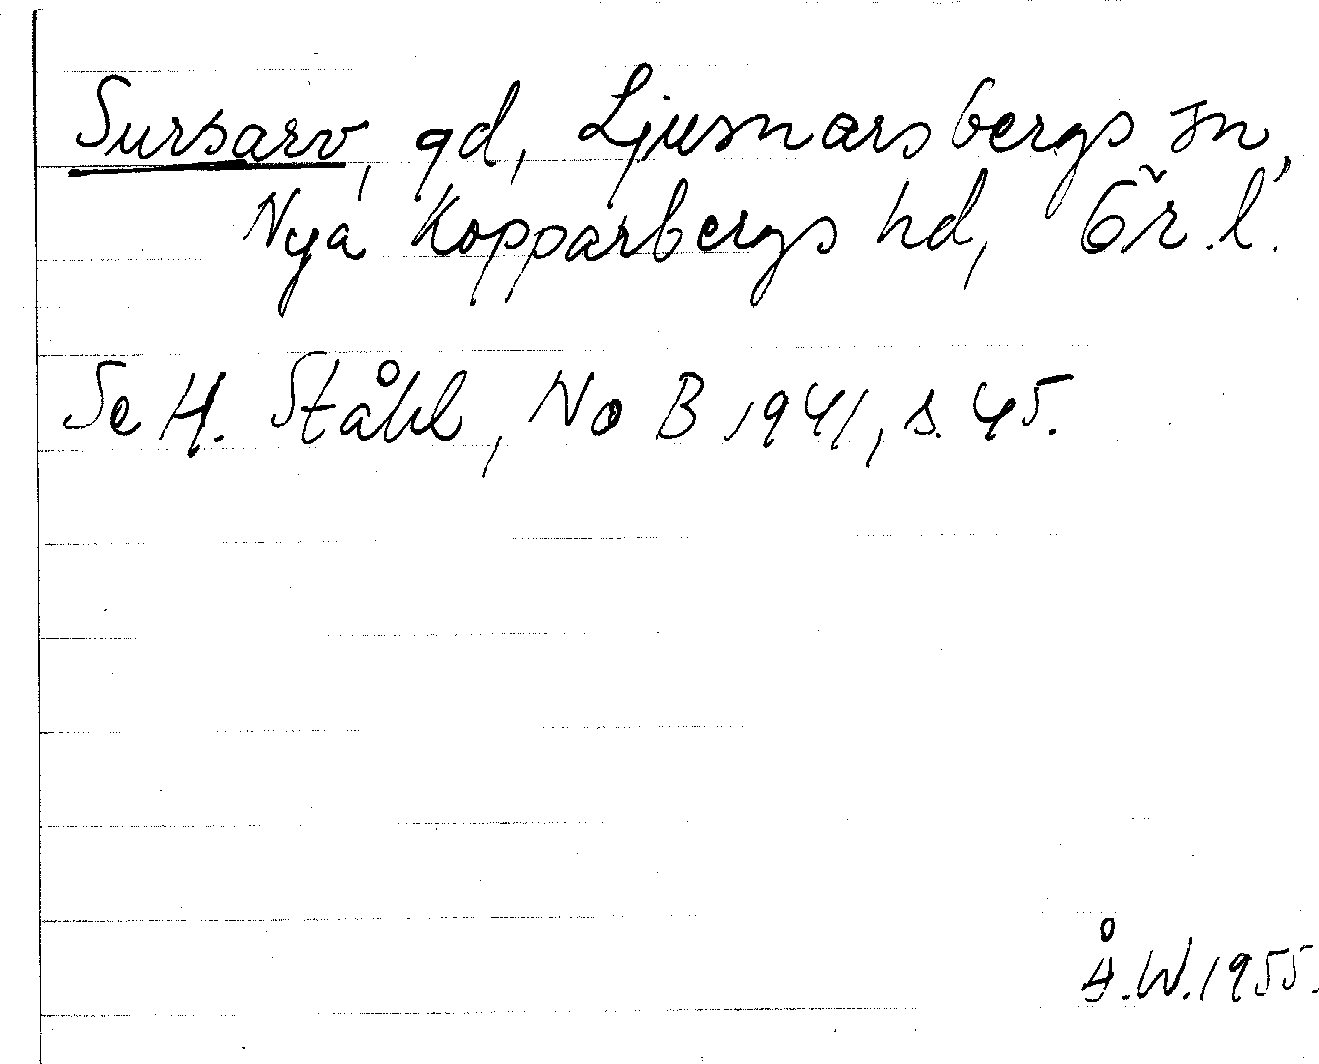 Sursarv, gd, Ljusnarsbergs sn,
Nya Kopparbergs hd, Ör. l.
Se H. Ståhl, NoB 1941, s. 45.
Å.W. 1955.